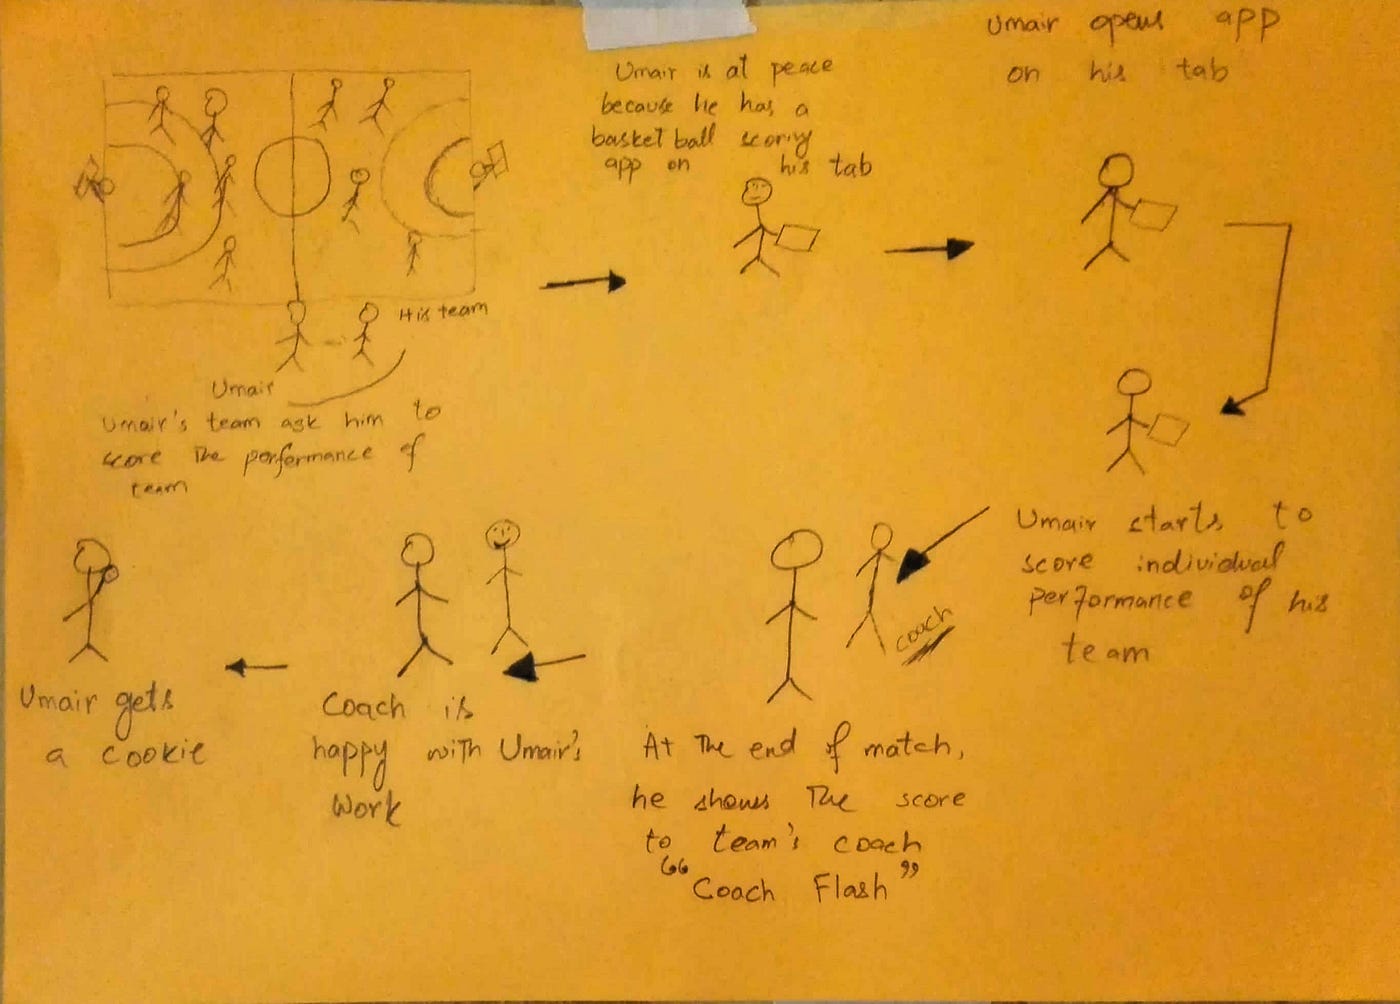 His team
Umair
Umair's team ask him to
score The performance of
team
Umair is at peace
because he has a
basket ball scoring
app on his tab
Umair opens app
on his tab
Umair starts to
score individual
performance of his
team
coach
At The end of match,
he shows The score
to team's coach
"Coach Flash"
Coach is
happy with Umair's
work
Umair gets
a cookie